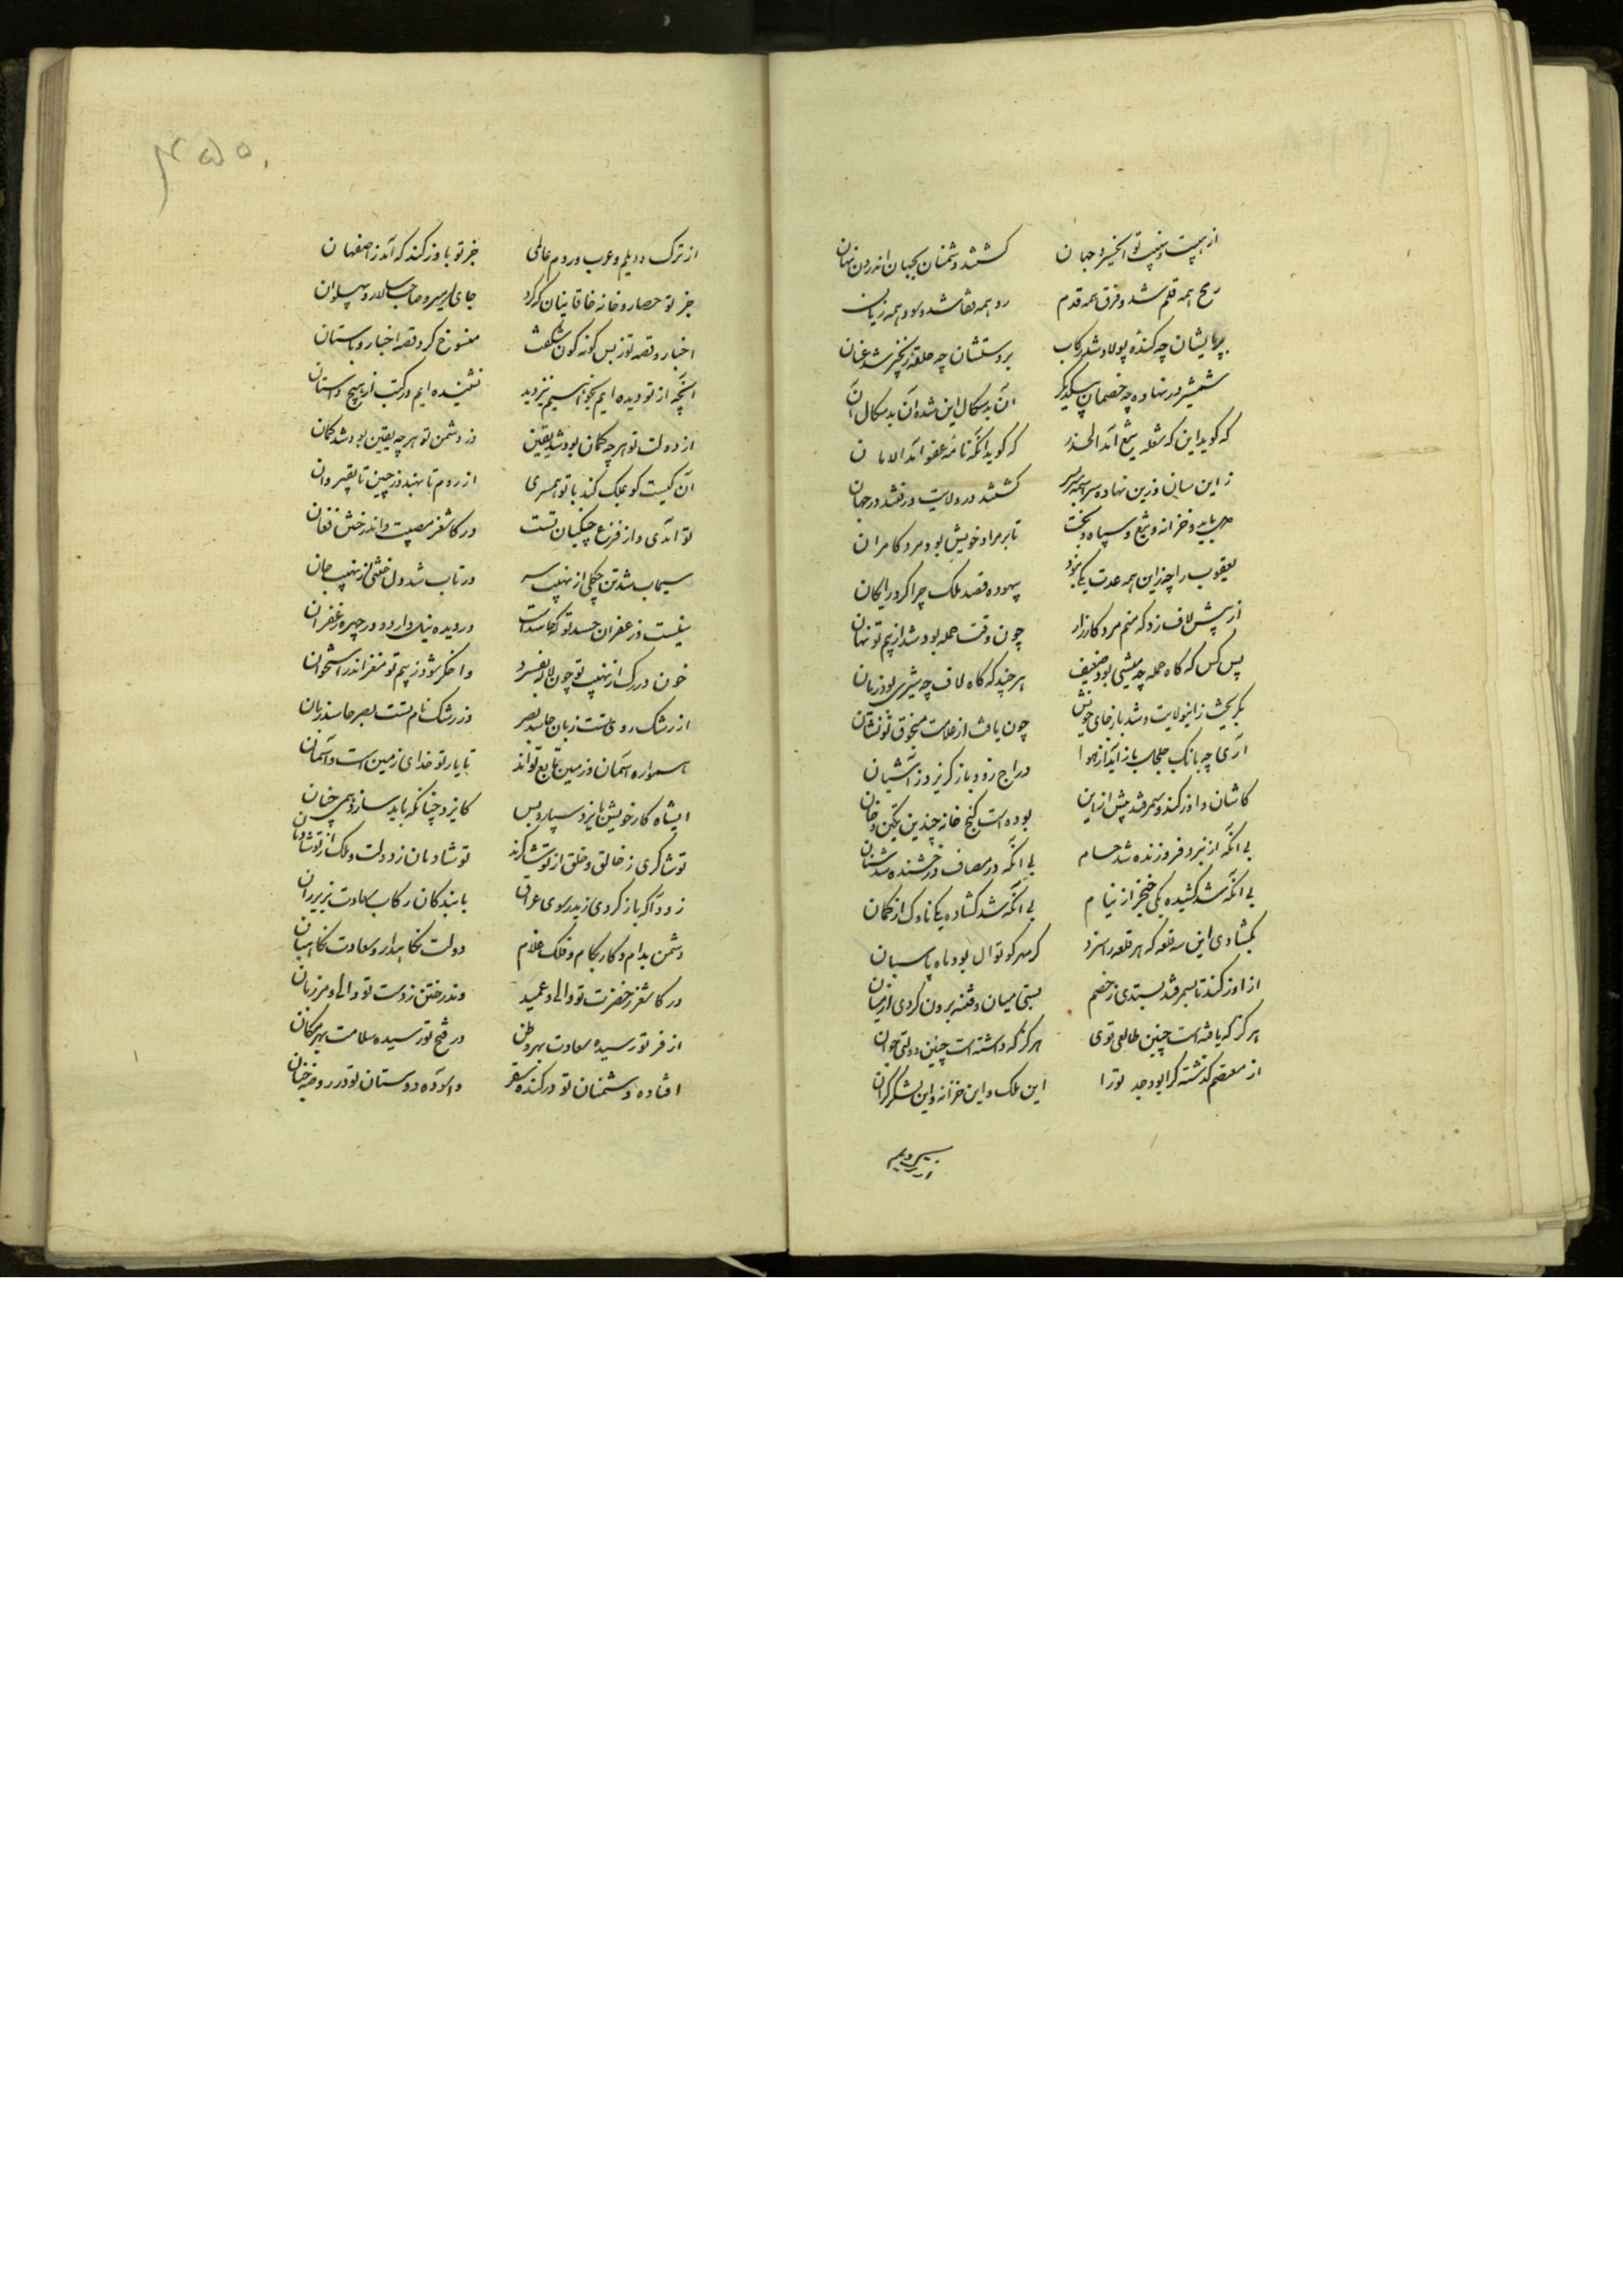 از هیبت و نهیب تو ای خسرو جهان گشتند دشمنان بجهان اندرون نهان
رمح همه قلم شد و فرق همه قدم روی همه قفا شد و سود همه زیان
بر پایشان چه کنده پولاد شد رکاب بر دستشان چه حلقه زنجیر شد عنان
شمشیر در نهاده چه خصمان بیکدیگر آن بدسگال این شده این بدسگال آن
که گوید این که شعله تیغ آمد الحذر که گوید آنکه نامه عفو آمد الامان
ز این سان وزین نهاده سراسر گشتند در ولایت و رفتند در جهان
باید و خزانه و تیغ و سپاه و بخت تا بر مراد خویش بود مرد کامران
یعقوب را چه زین همه عدت یکی نبود بیهوده قصد ملک چرا کرد رایکان
از پیش لاف زد که منم مرد کارزار چون وقت حمله بود شد از بیم تو نهان
پس کس که کاه حمله چه میشی بود ضعیف هر چند که کاه لاف چه شیری بود زیان
بگریخت زانولایت و شد باز جای خویش چون یافت از علامت منجوق تو نشان
آری چه بانک جلجل باز آید از هوا دراج زود باز گریزد ز آشیان
کاشان و اوزکند و سمرقند پیش ازین بوده است گنج خانه چندین تکین و خان
بی آنکه از نبرد فروزنده شد حسام بی آنکه در مصاف درخشنده شد سنان
بی آنکه شد کشیده یکی خنجر از نیام بی آنکه شد کشاده یکی ناوک از کمان
بکشادی این سه قلعه که هر قلعه را سزد گر مهر کوتوال بود ماه پاسبان
از اوزکند تا بسمرقند بستدی ز خصم بستی میان و فتنه برون کردی از میان
هرگز که یافته است چنین طالعی قوی هرگز که داشته است چنین دولتی جوان
از معتصم گذشته کرا بود جد تو را این ملک و این خزانه و این لشکر گران
از ترک و دیلم و عرب و روم عالمی جز تو باوزکند که آمد ز اصفهان
جز تو حصار و خانه خاقانیان که کرد جای امیر و صاحب و سالار و پهلوان
اخبار و قصه تو ز بس گونه گون شگفت منسوخ کرد قصه اخبار و باستان
آنچه از تو دیده ایم بخواسیم نیز دید نشنیده ایم در کتب از هیچ داستان
از دولت تو هر چه گمان بود شد یقین وز دشمن تو هر چه یقین بود شد گمان
آن کیست کو بملک کند با تو همسری از روم تا بهند و ز چین تا بقیروان
تو آمدی و از فزع چگلیان تست در کاشغر مصیبت و اندر ختن فغان
سیماب شد تن چگلی از نهیب سر در تاب شد دل ختنی از نهیب جان
نیلست و زعفران حسد تو که حاسدت در دیده نیل دارد و در چهره زعفران
خون در رگ از نهیب تو چون لاله بفسرد واخگر شود ز بیم تو مغز اندر استخوان
از رشک روی تست زبان حاسد بصر وز رشک نام تست بصر حاسد زبان
همواره آسمان و زمین تابع تواند تا یار تو خدای زمین است و آسمان
ایشاه کار خویش بایزد سپار و بس کایزد چنانکه باید سازد همی چنان
تو شاکری ز خالق و خلق از تو شاکرند تو شادمان ز دولت و ملک از تو شادمان
زود آکه باز کردی زیدر سوی عراق با بندگان رکاب سعادت بزیر ران
دشمن بدام و کار بکام و فلک غلام دولت نگاهدار و سعادت نگاهبان
در کاشغر ز حضرت تو والی و عمید وندر ختن ز دست تو والی و مرزبان
از فر تو رسیده سعادت بهر وطن در فتح تو رسیده سلامت بهر مکان
افتاده دشمنان تو در کنده سقر و آسوده دوستان تو در روضه جنان